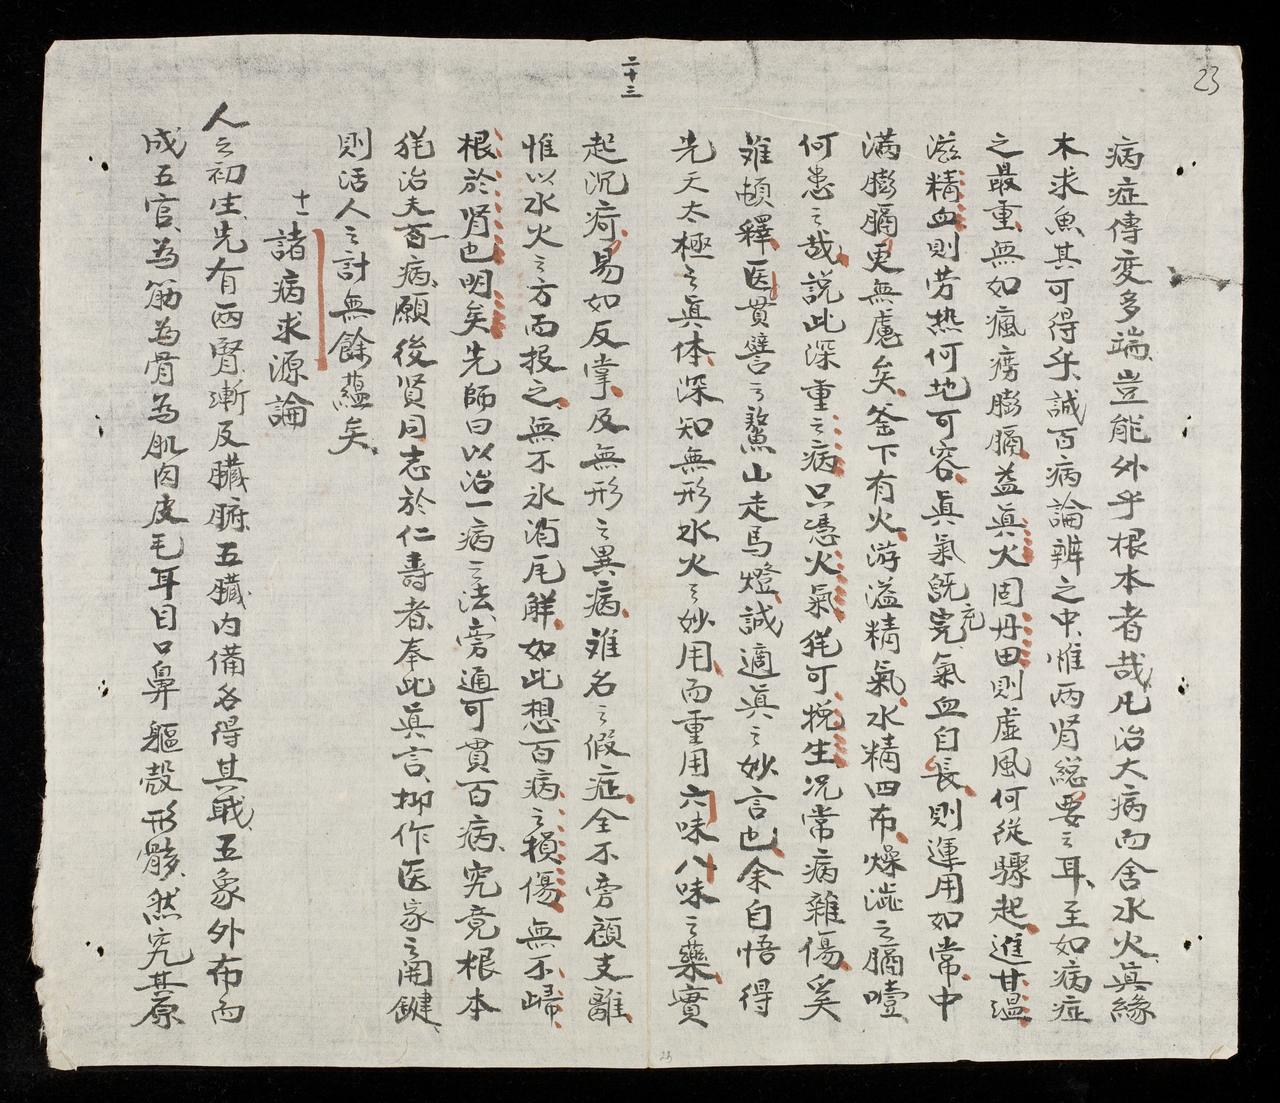 23
二十三
病症傳変多端豈能外乎根本者哉凡治大病而舍水火真緣
木求魚其可得乎誠百病論辨之中惟两肾総要之耳至如病症
之最重無如瘋癆膨膈益真火固丹田則虛風何從驟起進甘温
滋精血則劳热何地可容真氣既完充氣血自長則運用如常中
满膨膈更無慮矣釜下有火游溢精氣水精四布燥澁之膈噎
何患之哉説此深重之病只憑火氣犹可挽生况常病雜傷奚
难頓釋医贯譬之鰲山走馬燈誠適真之妙言也余自悟得
先天太極之真体深知無形水火之妙用而重用六味八味之藥實
起沉疴易如反掌及無形之異病难名之假症全不旁顧支離
惟以水火之方而投之無不氷消瓦解如此想百病之損傷無不歸
根於肾也明矣先師曰以治一病之法旁通可貫百病究竟根本
犹治夫一百病願後贤同志於仁壽者奉此真言抑作医家之関鍵
則活人之計無餘蘊矣
十一諸病求源論
人之初生先有两腎漸及臟腑五臟内備各得其职五象外布而
成五官為筋為骨為肌肉皮毛耳目口鼻軀殼形骸然究其原
23